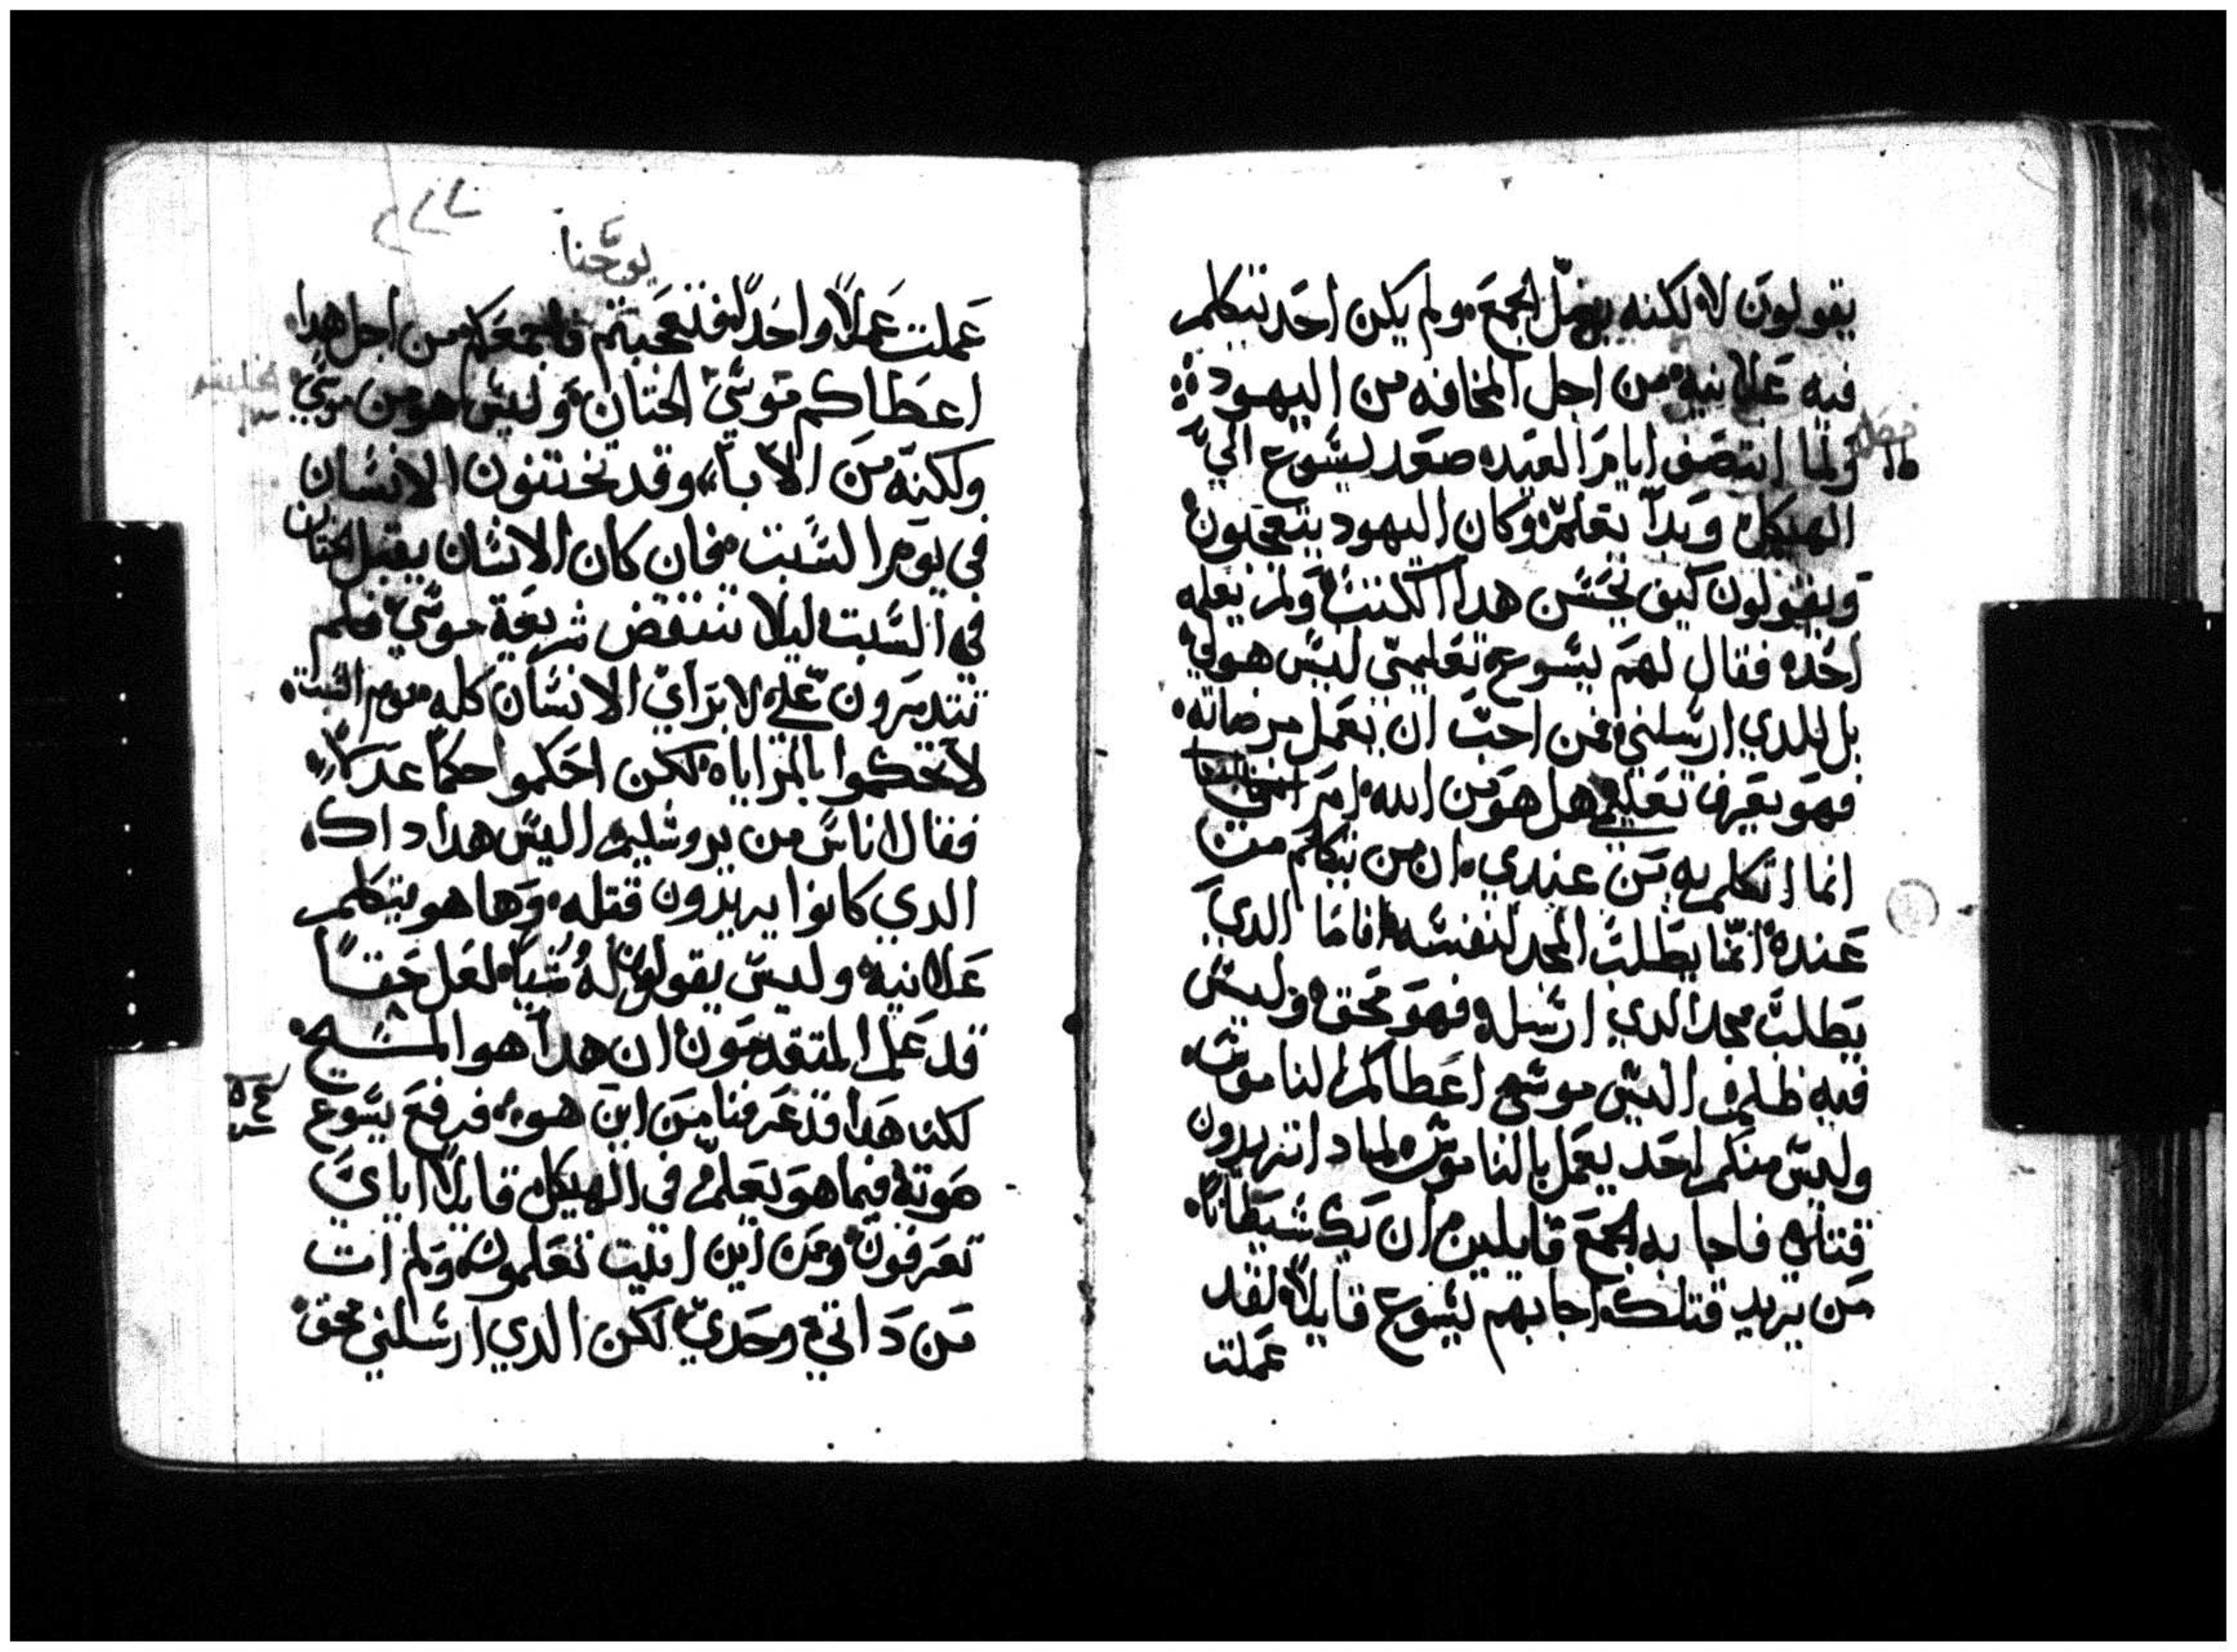 يقولون لا لكنه يضل الجمع ولم يكن احد يتكلم
فيه علانيه من اجل المخافه من اليهود
فصل
ولما انتصف ايام العيد صعد يسوع الي
الهيكل وبدا يعلم وكان اليهود يتعجبون
ويقولون كيف يحسن هدا الكتب ولم يعلمه
احد فقال لهم يسوع تعليمي ليس هو لي
بل للدي ارسلني فمن احب ان يعمل مرضاته
فهو يعرف تعليمي هل هو من الله ام
انما اتكلم به من عندي ان من يتكلم من
عنده انما يطلب المجد لنفسه فاما الدي
يطلب مجد الدي ارسله فهو محق وليس
فيه ظلم اليس موسى اعطاكم الناموس
وليس منكم احد يعمل بالناموس لمادا تريدون
قتلي فاجابه الجمع قايلين ان بك شيطانا
من يريد قتلك اجابهم يسوع قايلا لقد
عملت
يوحنا
عملت عملا واحدا فتعجبتم باجمعكم من اجل هدا
اعطاكم موسي الختان وليس هو من موسي
ولكنه من الابا وقد تختنون الانسان
في يوم السبت فان كان الانسان يقبل الختان
في السبت ليلا تنتقض شريعة موسي فلم
تتدمرون علي لابراي الانسان كله يوم السبت
لا تحكموا بالمراياه لكن احكموا حكما عدلا
فقال اناس من يروشليم اليس هدا داك
الدي كانوا يريدون قتله وها هو يتكلم
علانيه وليس يقولون له شيا لعل حقا
قد علم المتقدمون ان هدا هو المسيح
لكنا هدا قد عرفنا من اين هو فرفع يسوع
صوته فيما هو يعلم في الهيكل قايلا اياي
تعرفون ومن اين اتيت تعلمون ولم ات
من داتي وحدي لكن الدي ارسلني محق